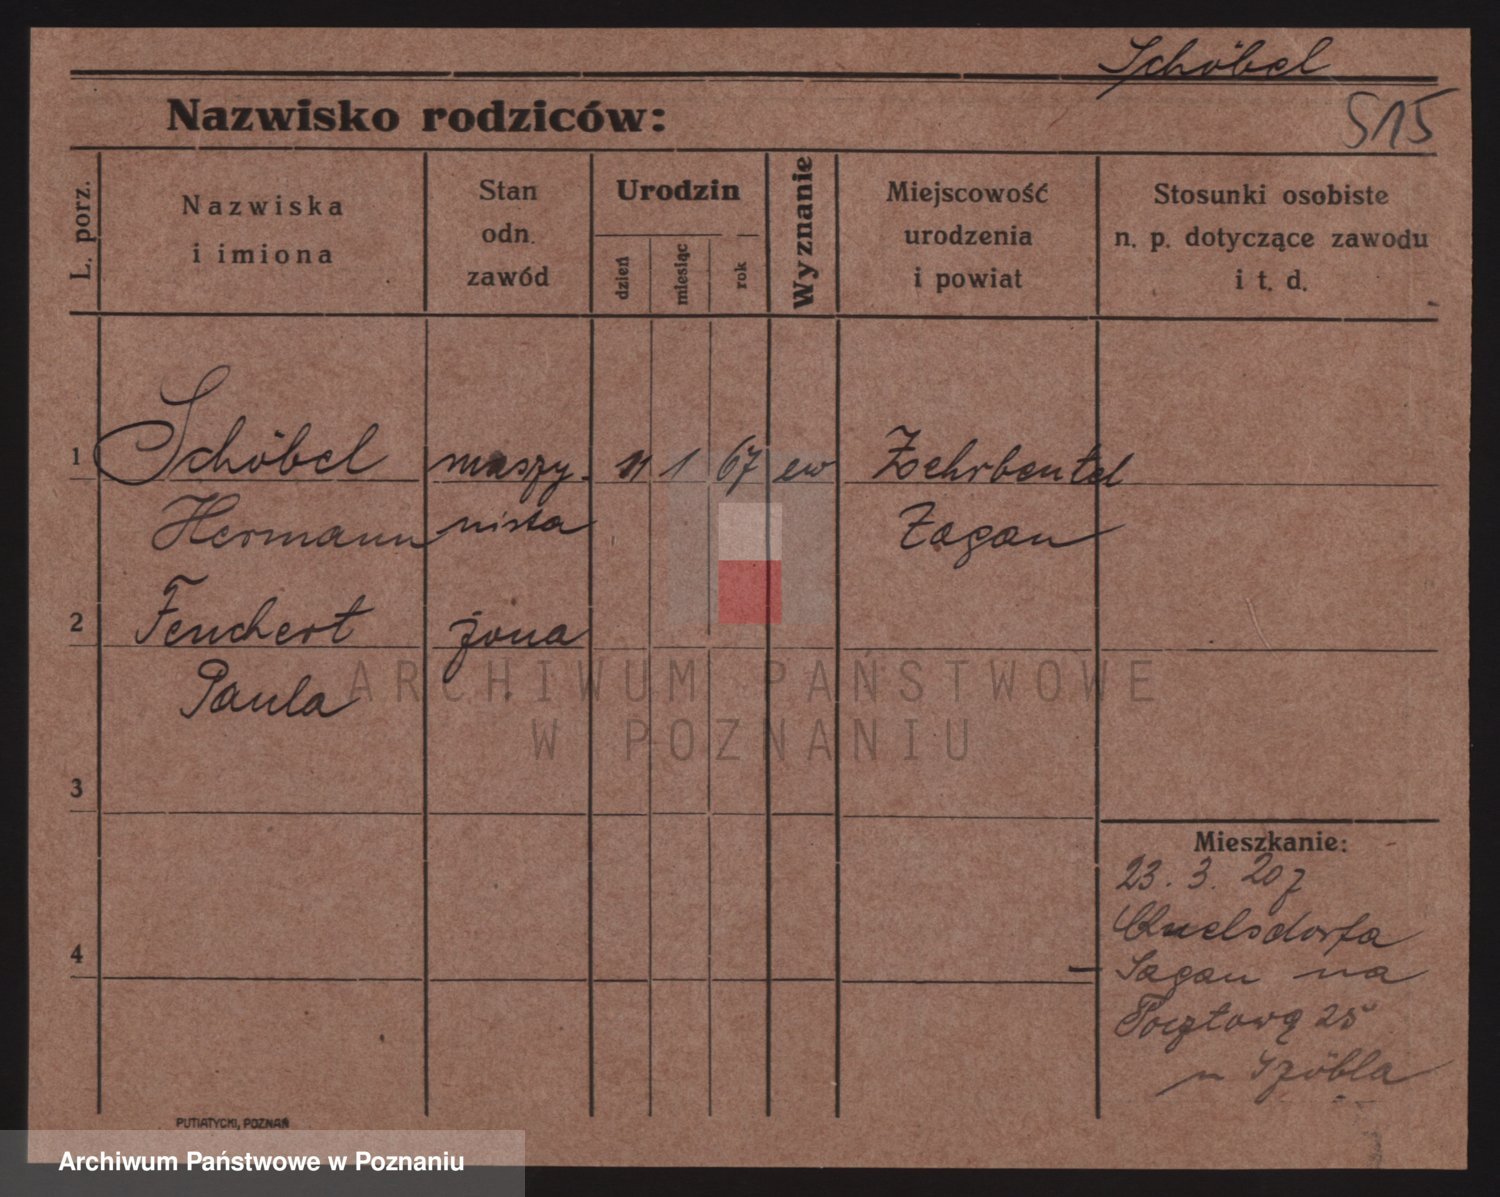 Schöbel
Nazwisko rodziców:
515
L. porz.
Nazwiska
i imiona
Stan
odn.
zawód
Urodzin
dzień
miesiąc
rok
Wyznanie
Miejscowość
urodzenia
i powiat
Stosunki osobiste
n. p. dotyczące zawodu
i t. d.
1 Schöbel maszy. 11 1 67 ew Zehrbeutel
Hermann nista Żagan
2 Feuchert żona
Paula
3
4
Mieszkanie:
23. 3. 20 z
Sagan na
Pocztową 25
u Szöbla
ARCHIWUM PAŃSTWOWE
W POZNANIU
PUTIATYCKI, POZNAŃ
Archiwum Państwowe w Poznaniu